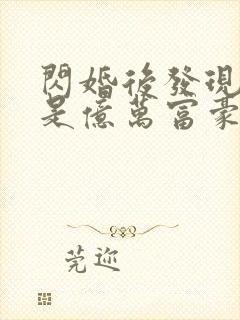 閃婚後發現
是億萬富豪
莞迩